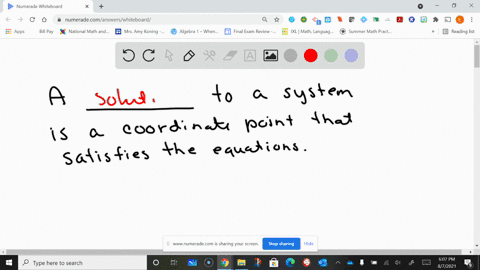 Numerade Whiteboard
numerade.com/answers/whiteboard/
Apps
Bill Pay
National Math and...
Mrs. Amy Koning -...
Algebra 1 - When...
Final Exam Review -...
IXL | Math, Languag...
Summer Math Pract...
Reading list
A solut. to a system
is a coordinate point that
satisfies the equations.
www.numerade.com is sharing your screen.
Stop sharing
Hide
Type here to search
6:07 PM
8/7/2021